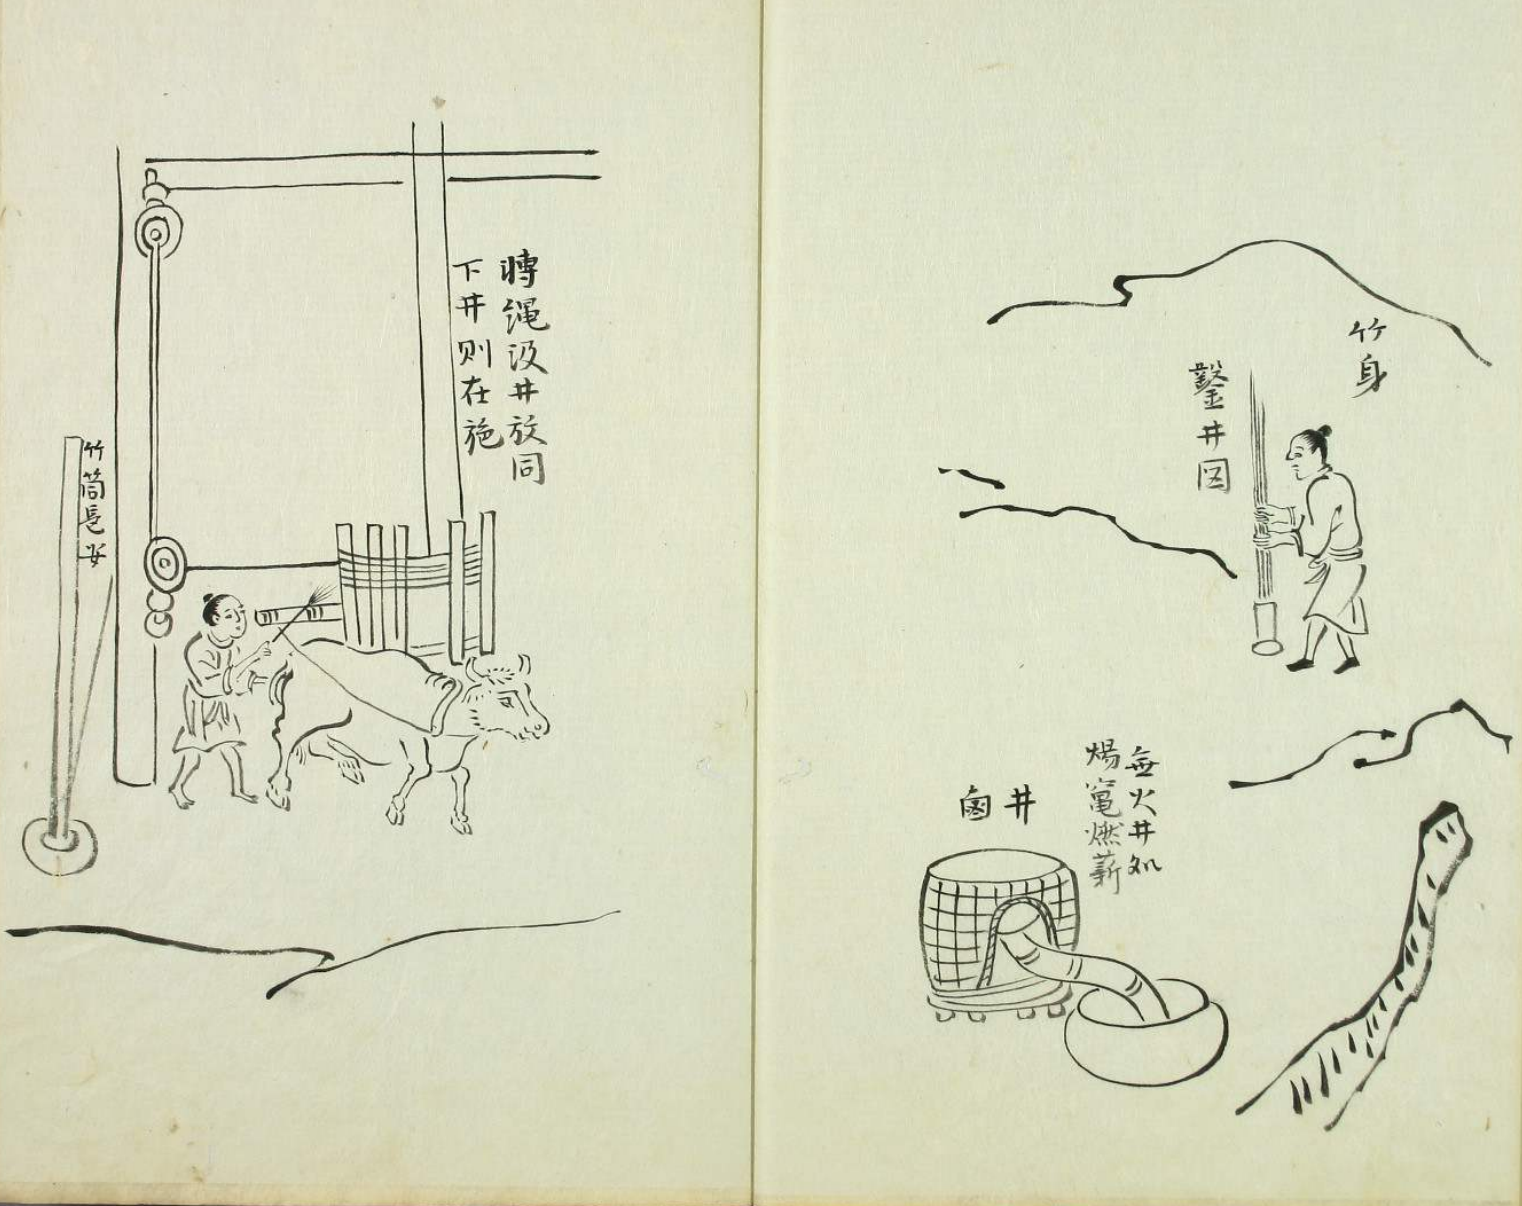 竹身
鑿井図
無火井処
煬竈燃薪
井鹵
轉縄汲井放同
下井则在施
竹筒長安